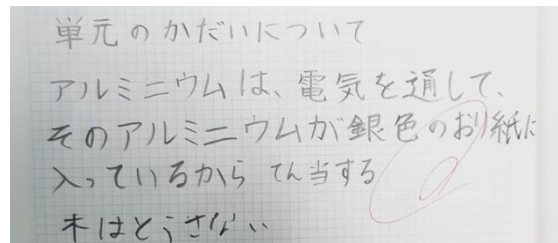 単元のかだいについて
アルミニウムは、電気を通して、
そのアルミニウムが銀色のおり紙に
入っているから てん当する
木はどうさない